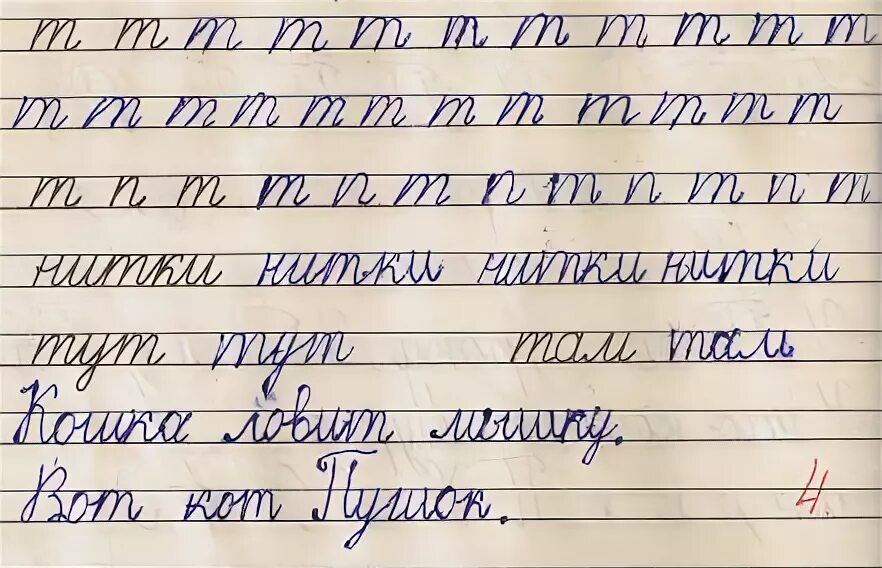 т т т т т т т т т т т
т т т т т т т т т т т т
т п т т п т п т п т п т
нитки нитки нитки нитки
тут тут там там
Кошка ловит мышку.
Вот кот Пушок. 4.